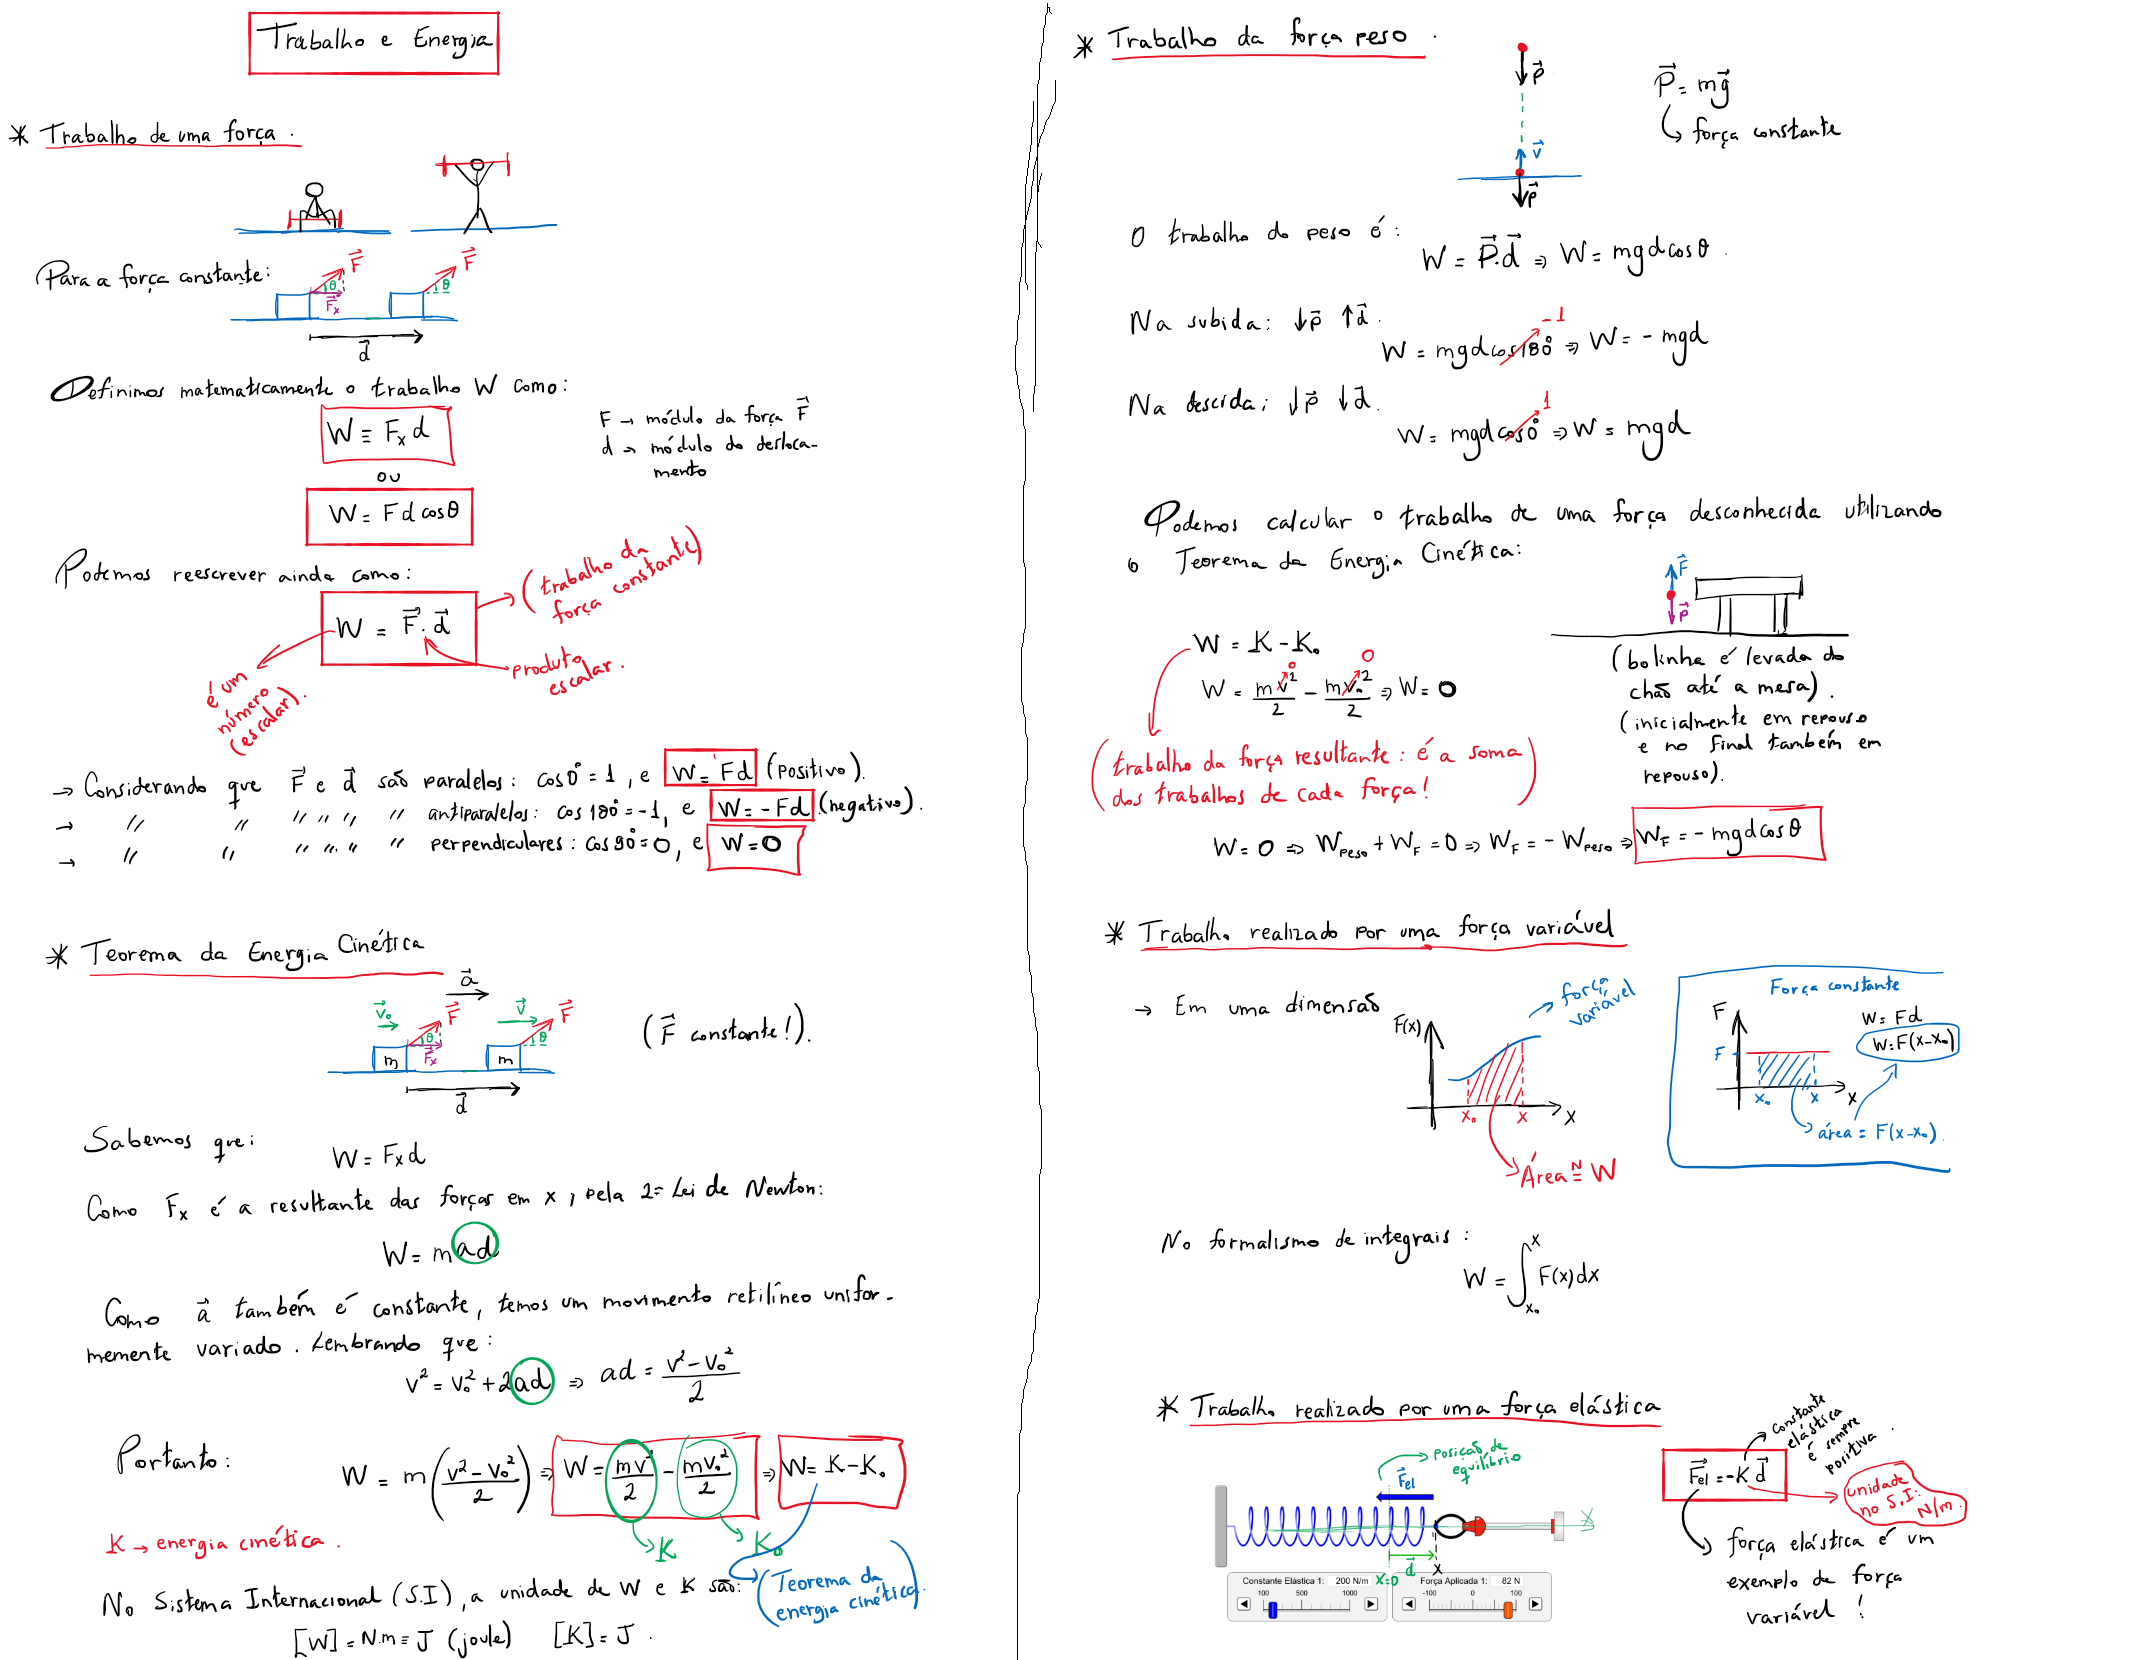 Trabalho e Energia
* Trabalho de uma força.
Para a força constante:
F⃗ F⃗
θ θ
F⃗x
d⃗
Definimos matematicamente o trabalho W como:
W ≡ Fx d
ou
W = F d cos θ
F → módulo da força F⃗
d → módulo do desloca-
mento
Podemos reescrever ainda como:
W = F⃗ · d⃗
(trabalho da
força constante)
produto
escalar.
é um
número
(escalar).
→ Considerando que F⃗ e d⃗ são paralelos: cos 0° = 1, e W = Fd (positivo).
→ " " " " " " antiparalelos: cos 180° = -1, e W = -Fd (negativo).
→ " " " " " " perpendiculares: cos 90° = 0, e W = 0
* Teorema da Energia Cinética
a⃗
v⃗₀ F⃗ v⃗ F⃗
θ θ
m F⃗x m
d⃗
(F⃗ constante!).
Sabemos que:
W = Fx d
Como Fx é a resultante das forças em x, pela 2ª Lei de Newton:
W = m a d
Como a⃗ também é constante, temos um movimento retilíneo unifor-
memente variado. Lembrando que:
v² = v₀² + 2ad ⇒ ad = (v² - v₀²)/2
Portanto:
W = m((v² - v₀²)/2) ⇒ W = mv²/2 - mv₀²/2 ⇒ W = K - K₀
K K₀
K → energia cinética.
(Teorema da
energia cinética).
No Sistema Internacional (S.I), a unidade de W e K são:
[W] = N.m ≡ J (joule) [K] = J.
* Trabalho da força peso.
P⃗
v⃗
P⃗
P⃗ = mg⃗
força constante
O trabalho do peso é:
W = P⃗.d⃗ ⇒ W = mgd cos θ.
Na subida: ↓P⃗ ↑d⃗.
W = mgd cos 180° -1 ⇒ W = - mgd
Na descida: ↓P⃗ ↓d⃗.
W = mgd cos 0° 1 ⇒ W = mgd
Podemos calcular o trabalho de uma força desconhecida utilizando
o Teorema da Energia Cinética:
F⃗
P⃗
(bolinha é levada do
chão até a mesa).
(inicialmente em repouso
e no final também em
repouso).
W = K - K₀
W = mv²/2 0 - mv₀²/2 0 ⇒ W = 0
(trabalho da força resultante: é a soma
dos trabalhos de cada força!)
W = 0 ⇒ Wpeso + WF = 0 ⇒ WF = - Wpeso ⇒ WF = - mgd cos θ
* Trabalho realizado por uma força variável
→ Em uma dimensão
F(x)
força
variável
x₀ x x
Área ≝ᴺ W
Força constante
F
F
x₀ x x
W = Fd
W = F(x-x₀)
área = F(x-x₀).
No formalismo de integrais:
W = ∫ₓ₀ˣ F(x)dx
* Trabalho realizado por uma força elástica
posição de
equilíbrio
F⃗el
x
d⃗
x=0
x
Constante Elástica 1: 200 N/m
100 500 1000
Força Aplicada 1: 82 N
-100 0 100
F⃗el = -K d⃗
constante
elástica
é sempre
positiva.
unidade
no S.I:
N/m.
força elástica é um
exemplo de força
variável!